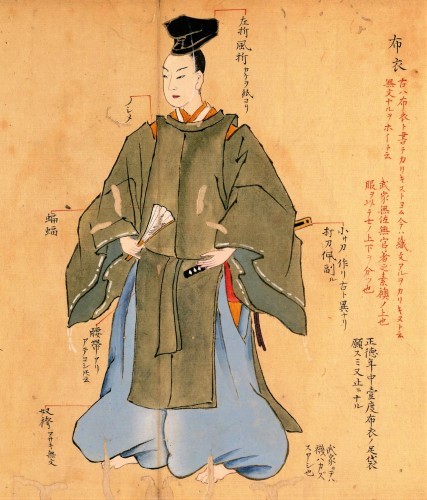 布衣
古ハ布衣ト書テカリキヌトヨム今ハ織文アルヲカリキヌト云
無文ナルヲホイト云
武家無位無官者之素襖ノ上也
服ヲ以テ士ノ上下ヲ分ツ也
左折風折 カケヲ紙ヨリ
ノシメ
小サ刀 作リ古ト異ナリ
打刀佩副ル
正徳年中 度布衣ノ足袋
願スミ又止ニナル
蝙蝠
腰帯アリ
奴袴 アサキ無文
武家ニテハ
襪ハカズ
スアシ也